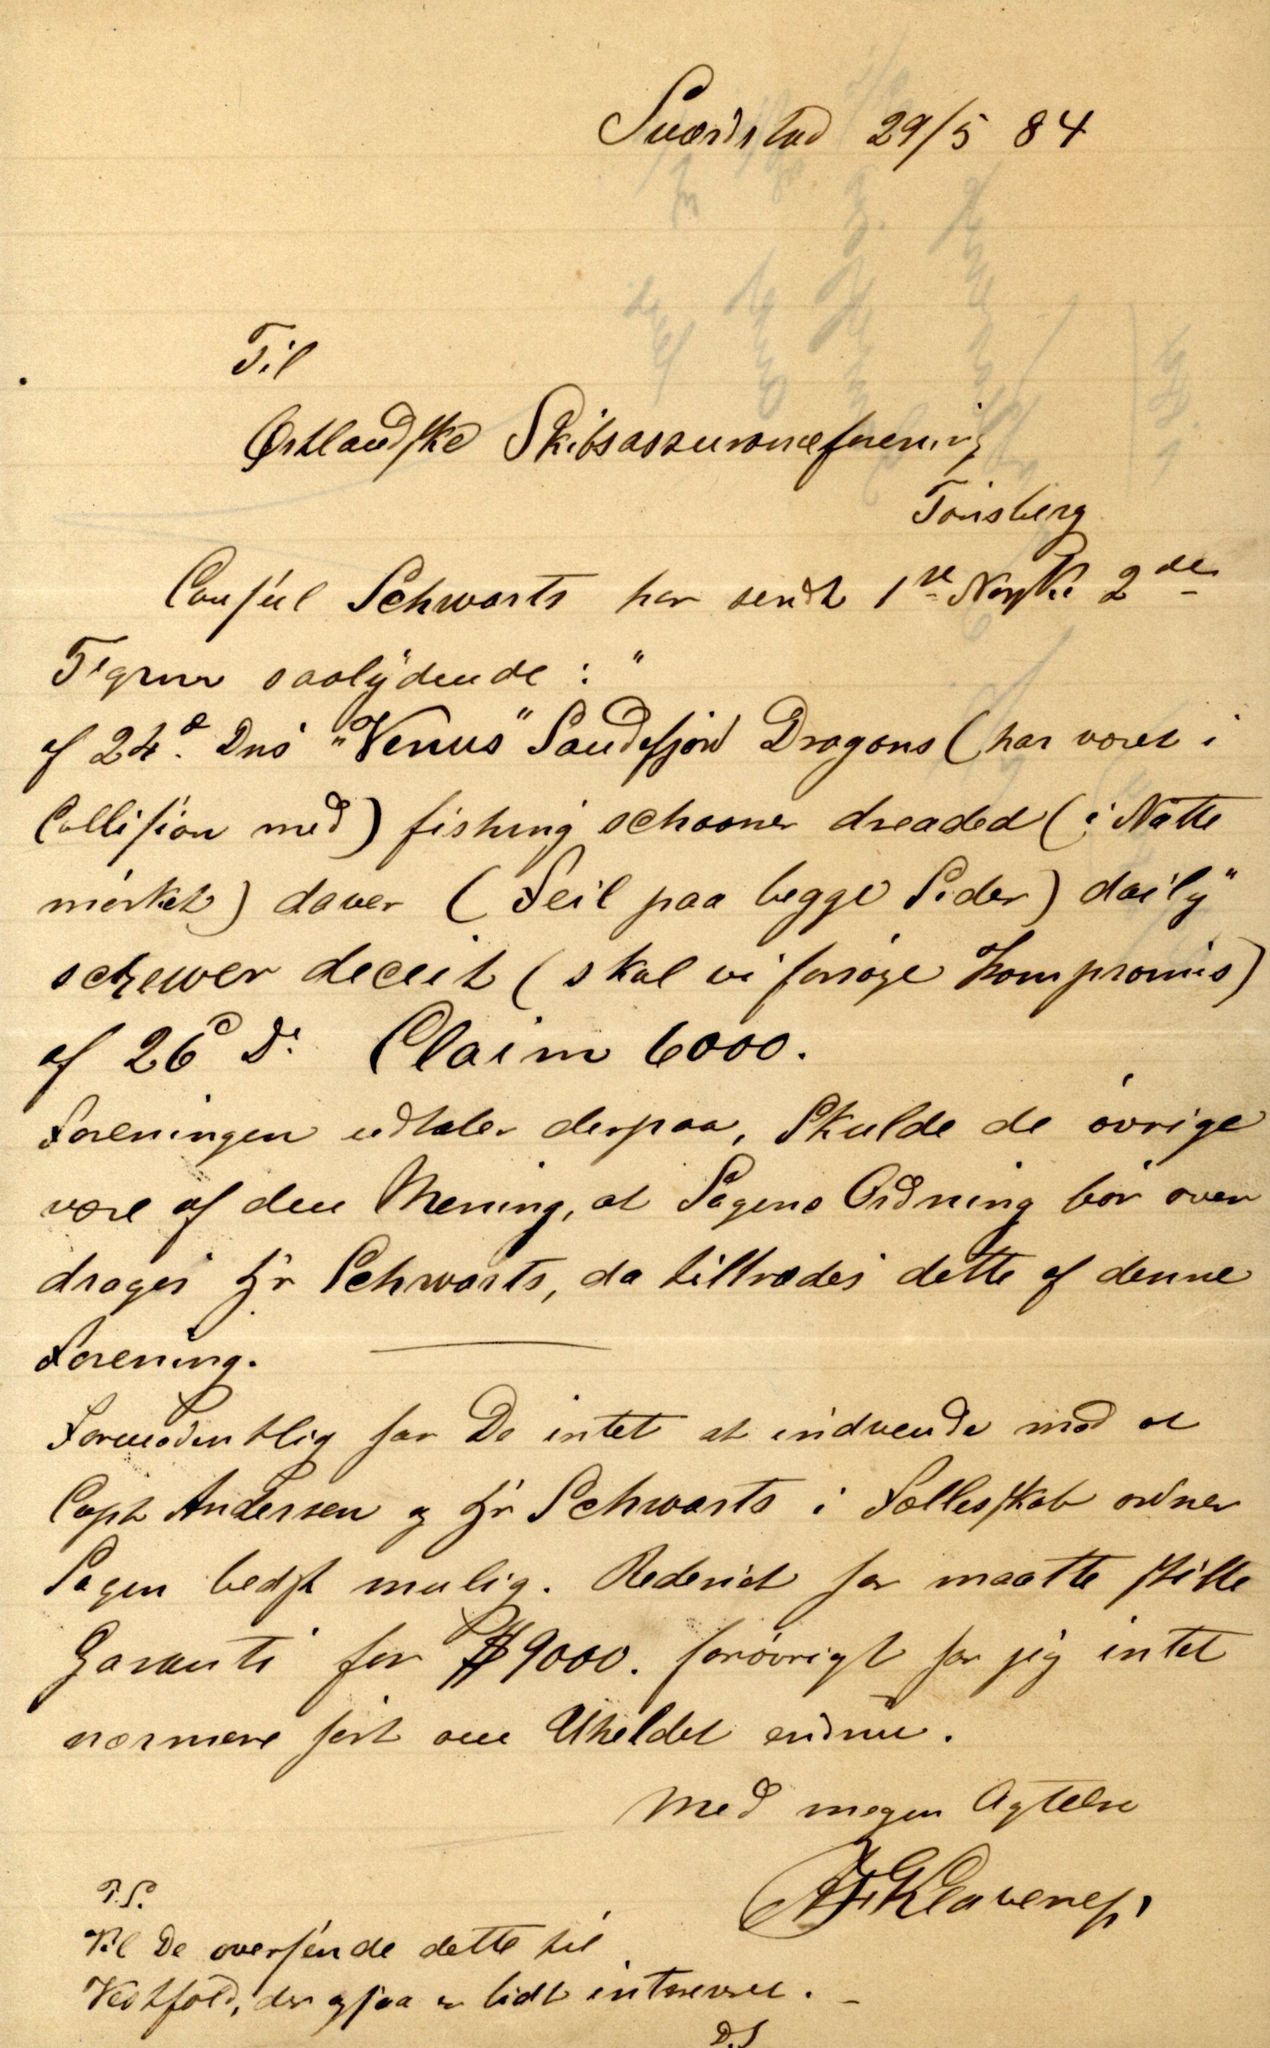 Sværstad 29/5 84
Til
Østlandske Skibsassuranceforening
Tönsberg
Consul Schwarts har sendt 1ste Norske 2de
Tlgrmr saalydende : "
af 24d. Dns "Venus" Sandefjord Dragons (har været i
Collision med) fishing schooner dreaded (i Natte
mörket) daver (Feil paa begge Sider) daily"
schewer deceit (skal vi forsöge Kompromis)
af 26d D. Claim 6000.
Foreningen udtaler derpaa, Skulde de övrige
være af den Mening, at Sagens Ordning bör over
drages Hr Schwarts, da tiltrædes dette af denne
Forening.
Formodentlig har De intet at indvende mod at
Capt Andersen og Hr Schwarts i Fællesskab ordner
Sagen bedst mulig. Rederiet har maatte stille
Garanti for $9000. forövrigt har jeg intet
nærmere hört om Uheldet endnu.
Med megen Agtelse
Klaveness
P.S.
Vil De oversende dette til
Vestfold, der ogsaa er lidt interesseret.
D.S